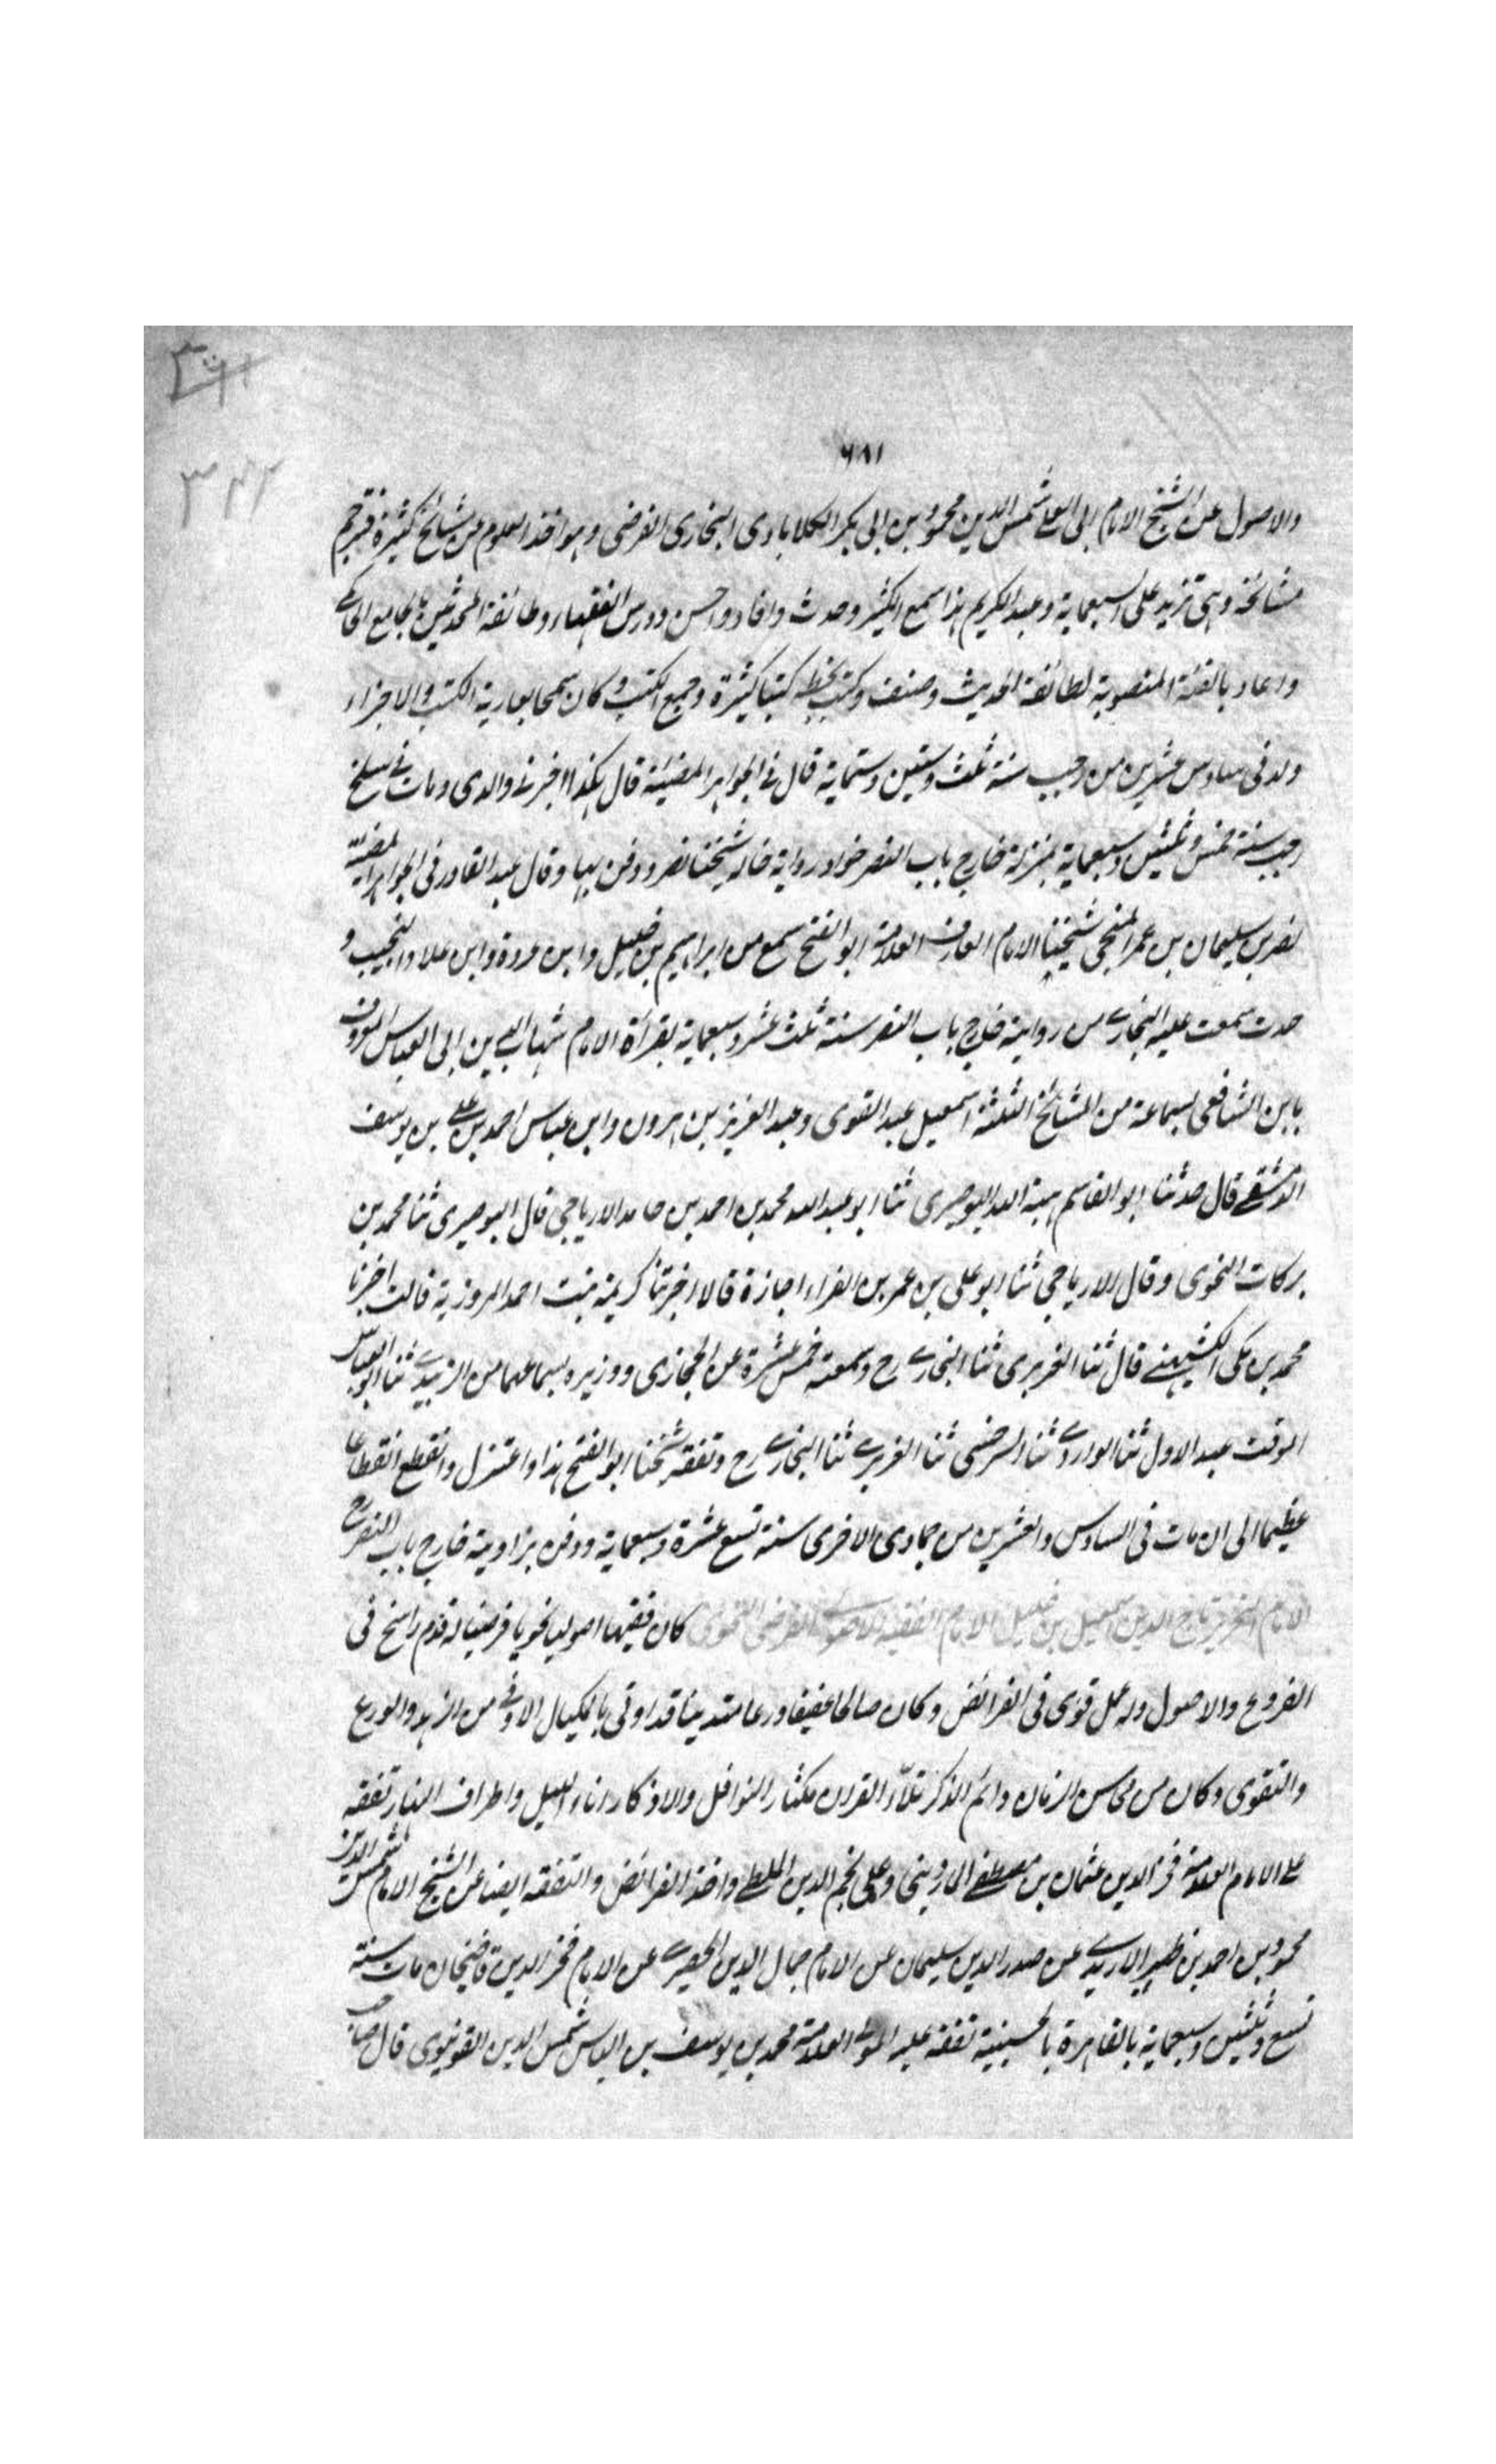 ٦٨١
٣٤٢
والاصول عن الشيخ الامام ابى العلا شمس الدين محمود بن ابى بكر الكلاباذى البخارى الفرضى وهو اخذ العلوم من مشائخ كثيرة فترجم
مشائخه وهى تزيد على السبعماية وعبد الكريم هذا سمع الكثير وحدث وافاد واحسن ودرس الفقهاء وطائفة المحدثين بالجامع الحاكمى
واعاد بالقبة المنصورية لطائفة الحديث وصنف وكتب بخطه كتبا كثيرة وجمع الكتب وكان سمحا بعارية الكتب والاجزاء
ولد فى سادس عشرين من رجب سنة ثلث وستين وستماية قال فى الجواهر المضيئة قال هكذا اخبرنى والدى ومات فى سلخ
رجب سنة خمس وثلثين وسبعماية بمنزله خارج باب النصر جوار زواية خاله شيخنا نصر ودفن بها وقال عبد القادر فى الجواهر المضيئة
نصر بن سليمان بن عمر المنبجى شيخنا الامام العارف العلامة ابو الفتح سمع من ابراهيم بن خليل وابن وابن علاو النجيب و
حدث سمعت عليه البخارى من رواية خارج باب النصر سنة ثلث عشر وسبعماية بقراءة الامام شهاب الدين ابى العباس المعروف
بابن الشافعى بسماعه من المشائخ الثلثة اسمعيل عبد القوى وعبد العزيز بن هرون وابن عباس احمد بن على بن يوسف
الدمشقى قال حدثنا ابو القاسم هبة الله البوصيرى ثنا ابو عبد الله محمد بن احمد بن حامد الارياجى قال البوصيرى ثنا محمد بن
بركات النحوى وقال الارياجى ثنا ابو على بن عمر بن الفراء اجازة قالا اخبرتنا كريمة بنت احمد المروزية قالت اخبرنا
محمد بن مكى الكشميهنى قال ثنا الفربرى ثنا البخارى ح وسمعته خمس عشرة عن الحجازى ووزيره بسماعهما من الزبيدى ثنا ابو العباس
الوقت عبد الاول ثنا الواردى ثنا السرخسى ثنا الفربرى ثنا البخارى رح وتفقه شيخنا ابو الفتح هذا واعتزل وانقطع انقطاعا
عظيما الى ان مات فى السادس والعشرين من جمادى الاخرى سنة تسع عشرة وسبعماية ودفن بزاويته خارج باب النصر رح
الامام النحرير تاج الدين اسمعيل بن خليل الامام الفقيه الاصولى الفرضى النحوى كان فقيها اصوليا نحويا فرضيا له قدم راسخ فى
الفروع والاصول وله عمل قوى فى الفرائض وكان صالحا عفيفا ورعا متدينا قد اوتى بالمكيال الاوفى من الزهد والورع
والتقوى وكان من محاسن الزمان دائم الذكر تلاّء القران مكثار النوافل والاذكار اناء الليل واطراف النهار تفقه
على الامام العلامة فخر الدين عثمان بن مصطفى الماردينى وعلى نجم الدين الملطى واخذ الفرائض والتفقه ايضا عن الشيخ الامام شمس الدين
محمود بن احمد بن ظهير الاريدى عن صدر الدين سليمان عن الامام جمال الدين الحصيرى عن الامام فخر الدين قاضيخان مات سنة
تسع وثلثين وسبعماية بالقاهرة بالحسينية تفقه عليه المولى العلامة محمد بن يوسف بن الياس شمس الدين القونيوى قال صاحب